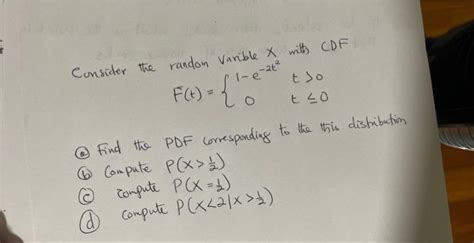 Consider the randon varible X with CDF
F(t) = { 1 - e^{-2t^2} t > 0
0 t ≤ 0
(a) Find the PDF corresponding to the this distribution
(b) Compute P(X > 1/2)
(c) compute P(X = 1/2)
(d) compute P(X < 2 | X > 1/2)